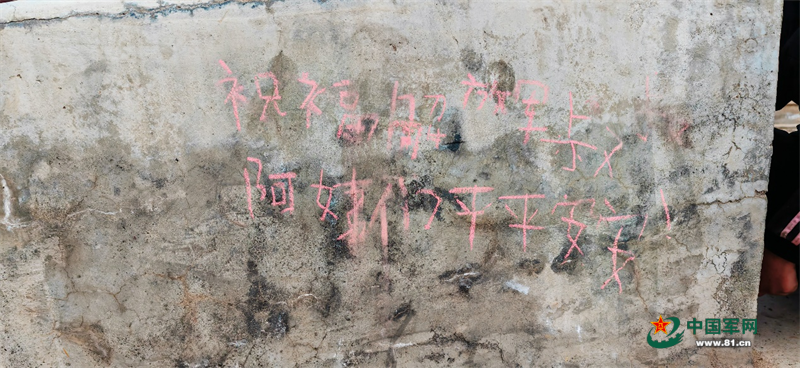 祝福解放军战士
阿妹们平平安安!
中国军网
www.81.cn